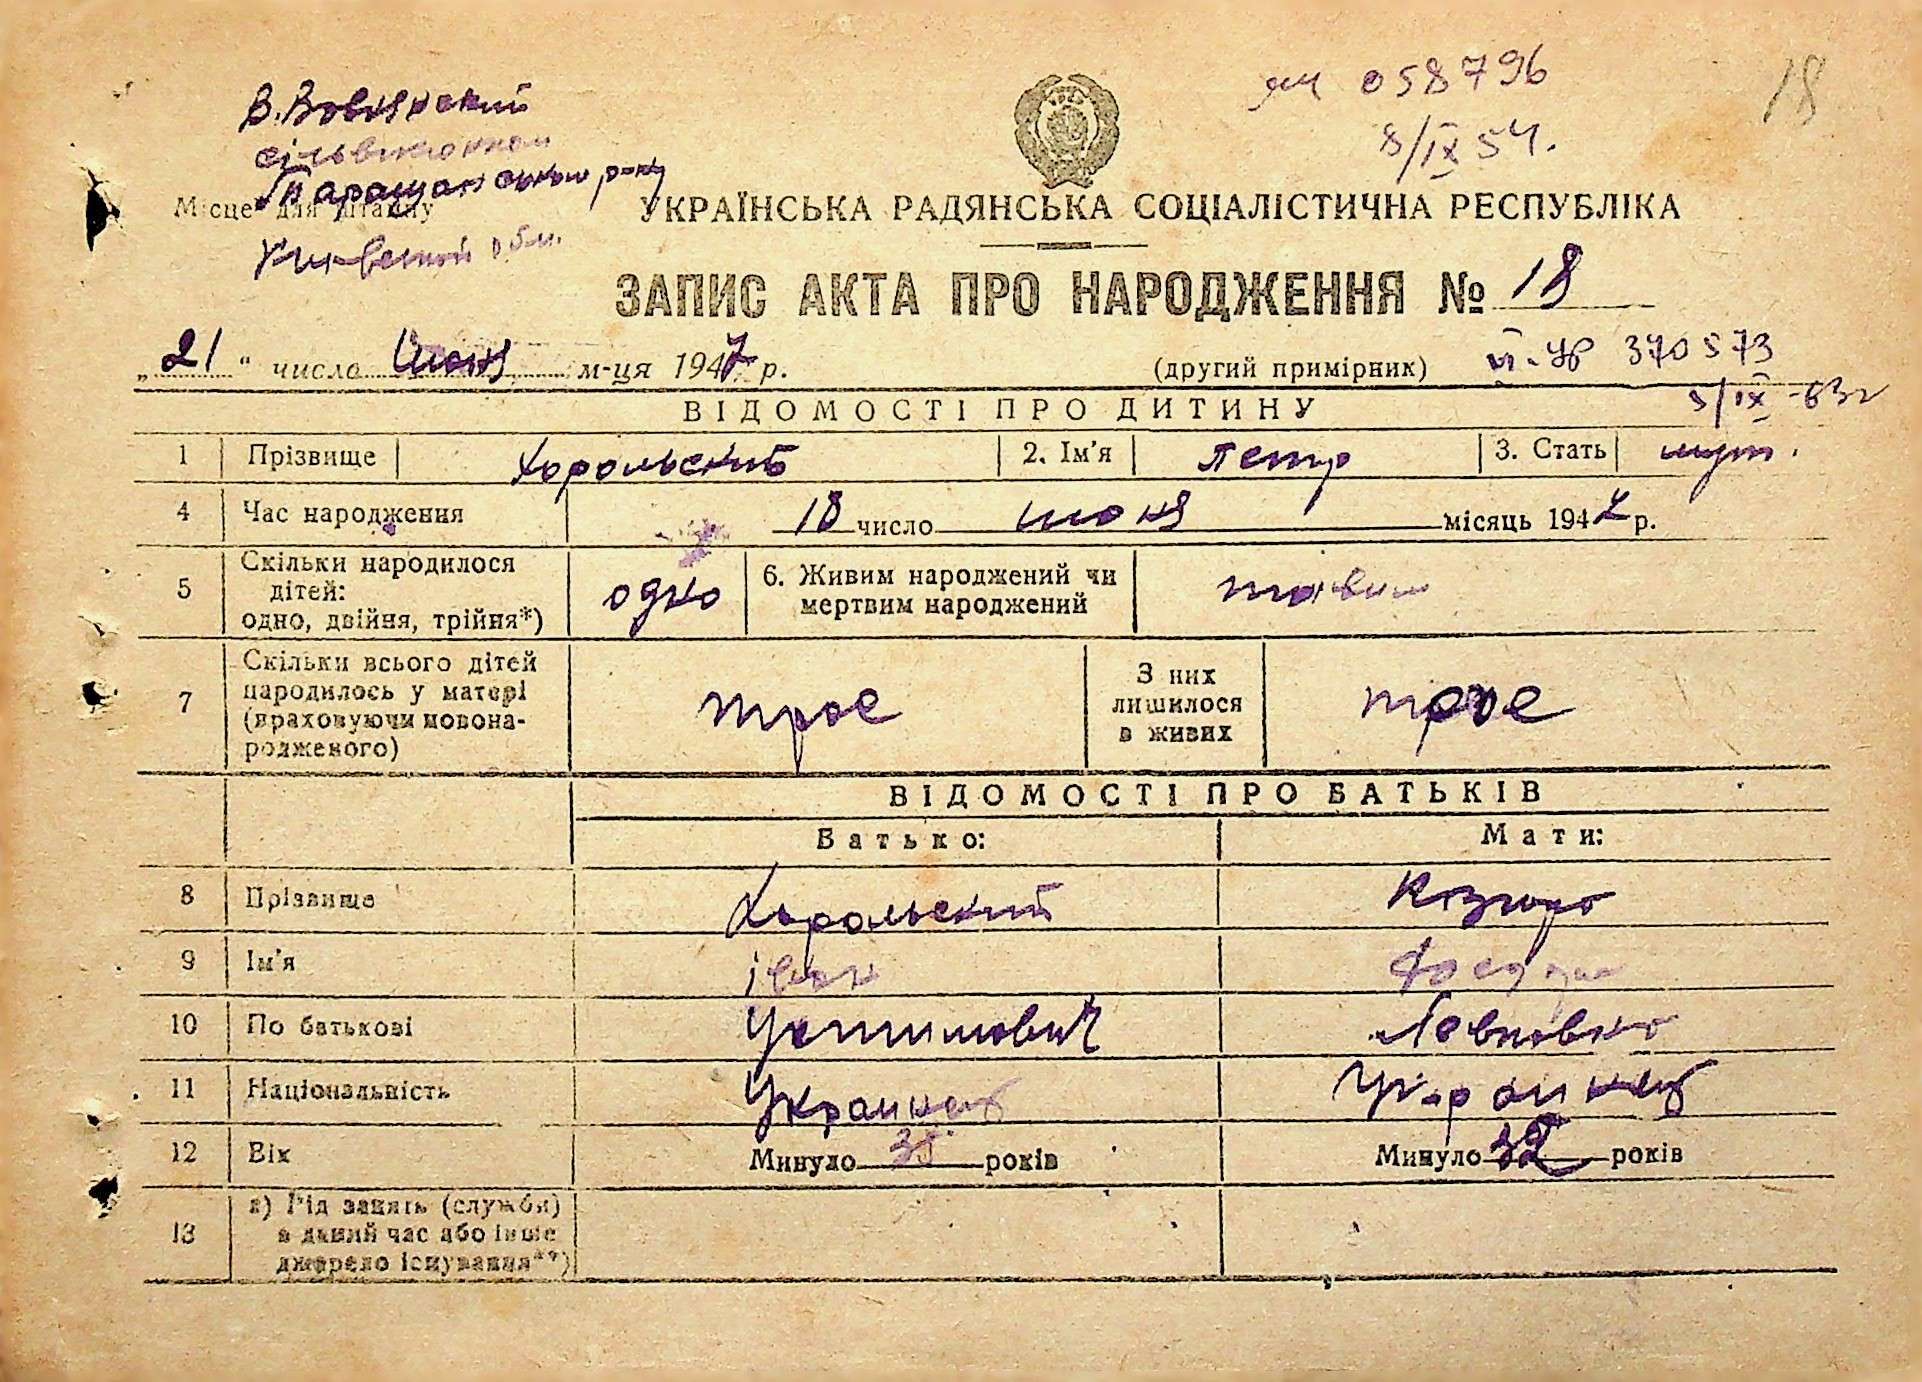 В. Вовнянский
сільвиконком
Таращанський р-ну
Місце для штампу
Киевский обл.
058796
8/IX 54.
18
УКРАЇНСЬКА РАДЯНСЬКА СОЦІАЛІСТИЧНА РЕСПУБЛІКА
ЗАПИС АКТА ПРО НАРОДЖЕННЯ № 18
„21“ число июня м-ця 1947 р.
(другий примірник)
370573
5/IX -63г
ВІДОМОСТІ ПРО ДИТИНУ
1 Прізвище Хорольский 2. Ім'я Петр 3. Стать муж.
4 Час народження 18 число июня місяць 1947 р.
5 Скільки народилося дітей: одно, двійня, трійня*) одно 6. Живим народжений чи мертвим народжений живим
7 Скільки всього дітей народилось у матері (враховуючи новонародженого) трое З них лишилося в живих трое
ВІДОМОСТІ ПРО БАТЬКІВ
Батько: Мати:
8 Прізвище Хорольский Козюра
9 Ім'я іван
10 По батькові Устимович
11 Національність Украинец Украинец
12 Вік Минуло 35 років Минуло 32 років
13 а) Рід занять (служби) в даний час або інше джерело існування**)